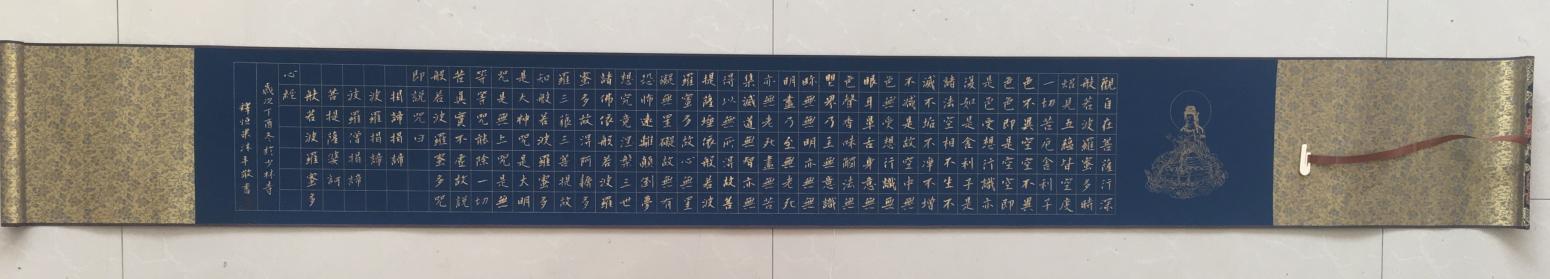 觀自在菩薩行深
般若波羅蜜多時
照見五蘊皆空度
一切苦厄舍利子
色不異空空不異
色色即是空空即
是色受想行識亦
復如是舍利子是
諸法空相不生不
滅不垢不淨不增
不減是故空中無
色無受想行識無
眼耳鼻舌身意無
色聲香味觸法無
眼界乃至無意識
界無無明亦無無
明盡乃至無老死
亦無老死盡無苦
集滅道無智亦無
得以無所得故菩
提薩埵依般若波
羅蜜多故心無罣
礙無罣礙故無有
恐怖遠離顛倒夢
想究竟涅槃三世
諸佛依般若波羅
蜜多故得阿耨多
羅三藐三菩提故
知般若波羅蜜多
是大神咒是大明
咒是無上咒是無
等等咒能除一切
苦真實不虛故說
般若波羅蜜多咒
即說咒曰
揭諦揭諦
波羅揭諦
波羅僧揭諦
菩提薩婆訶
般若波羅蜜多
心經
歲次丁酉冬於少林寺
釋恒果沐手敬書